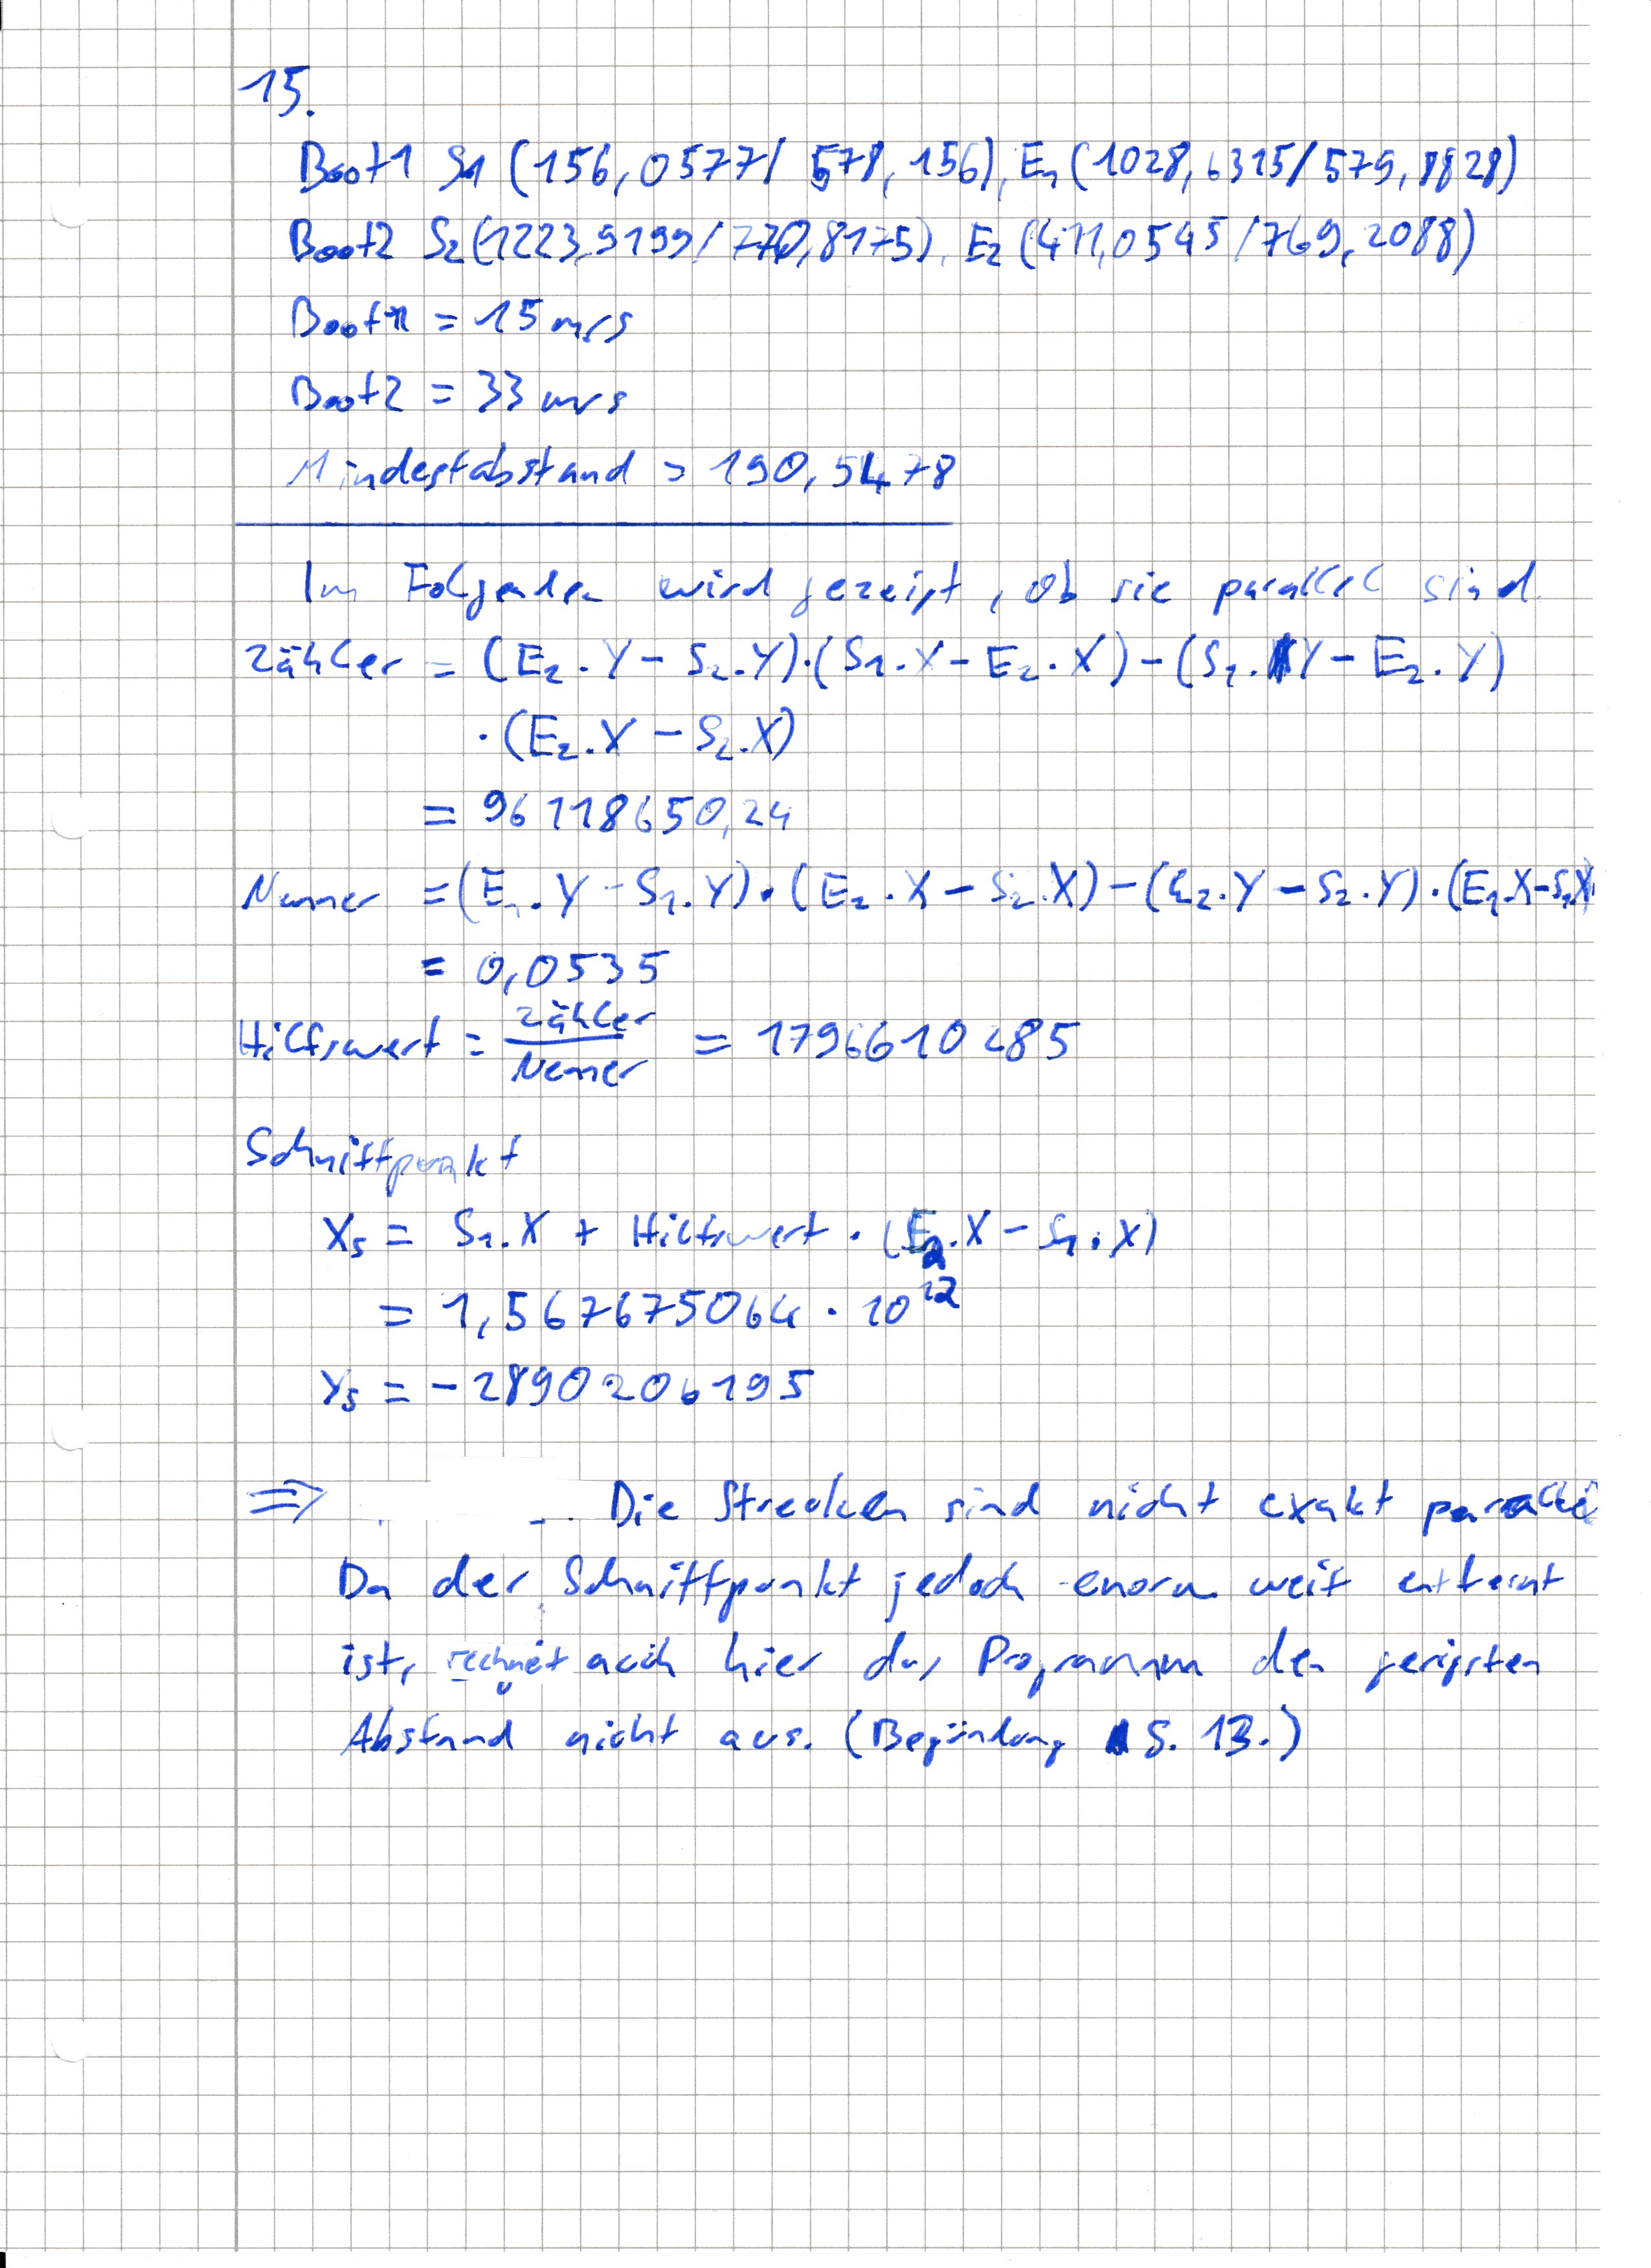 15.
Boot1 S1 (156,0577/ 578,156), E1 (1028,6315/579,8828)
Boot2 S2 (1223,9199/770,8175), E2 (411,0545/769,2088)
Boot1 = 15 m/s
Boot2 = 33 m/s
Mindestabstand = 190,5478
Im Folgenden wird gezeigt, ob sie parallel sind.
Zähler = (E2.Y - S2.Y)·(S1.X - E2.X) - (S1.Y - E2.Y)
·(E2.X - S2.X)
= 96118650,24
Nenner = (E1.Y - S1.Y)·(E2.X - S2.X) - (E2.Y - S2.Y)·(E1.X-S1.X)
= 0,0535
Hilfswert = Zähler / Nenner = 1796610285
Schnittpunkt
Xs = S1.X + Hilfswert · (E1.X - S1.X)
= 1,567675064 · 10^12
Ys = -2890206195
⇒ Die Strecken sind nicht exakt parallel
Da der Schnittpunkt jedoch enorm weit entfernt
ist, rechnet auch hier das Programm den gerigsten
Abstand nicht aus. (Begründung S. 13.)